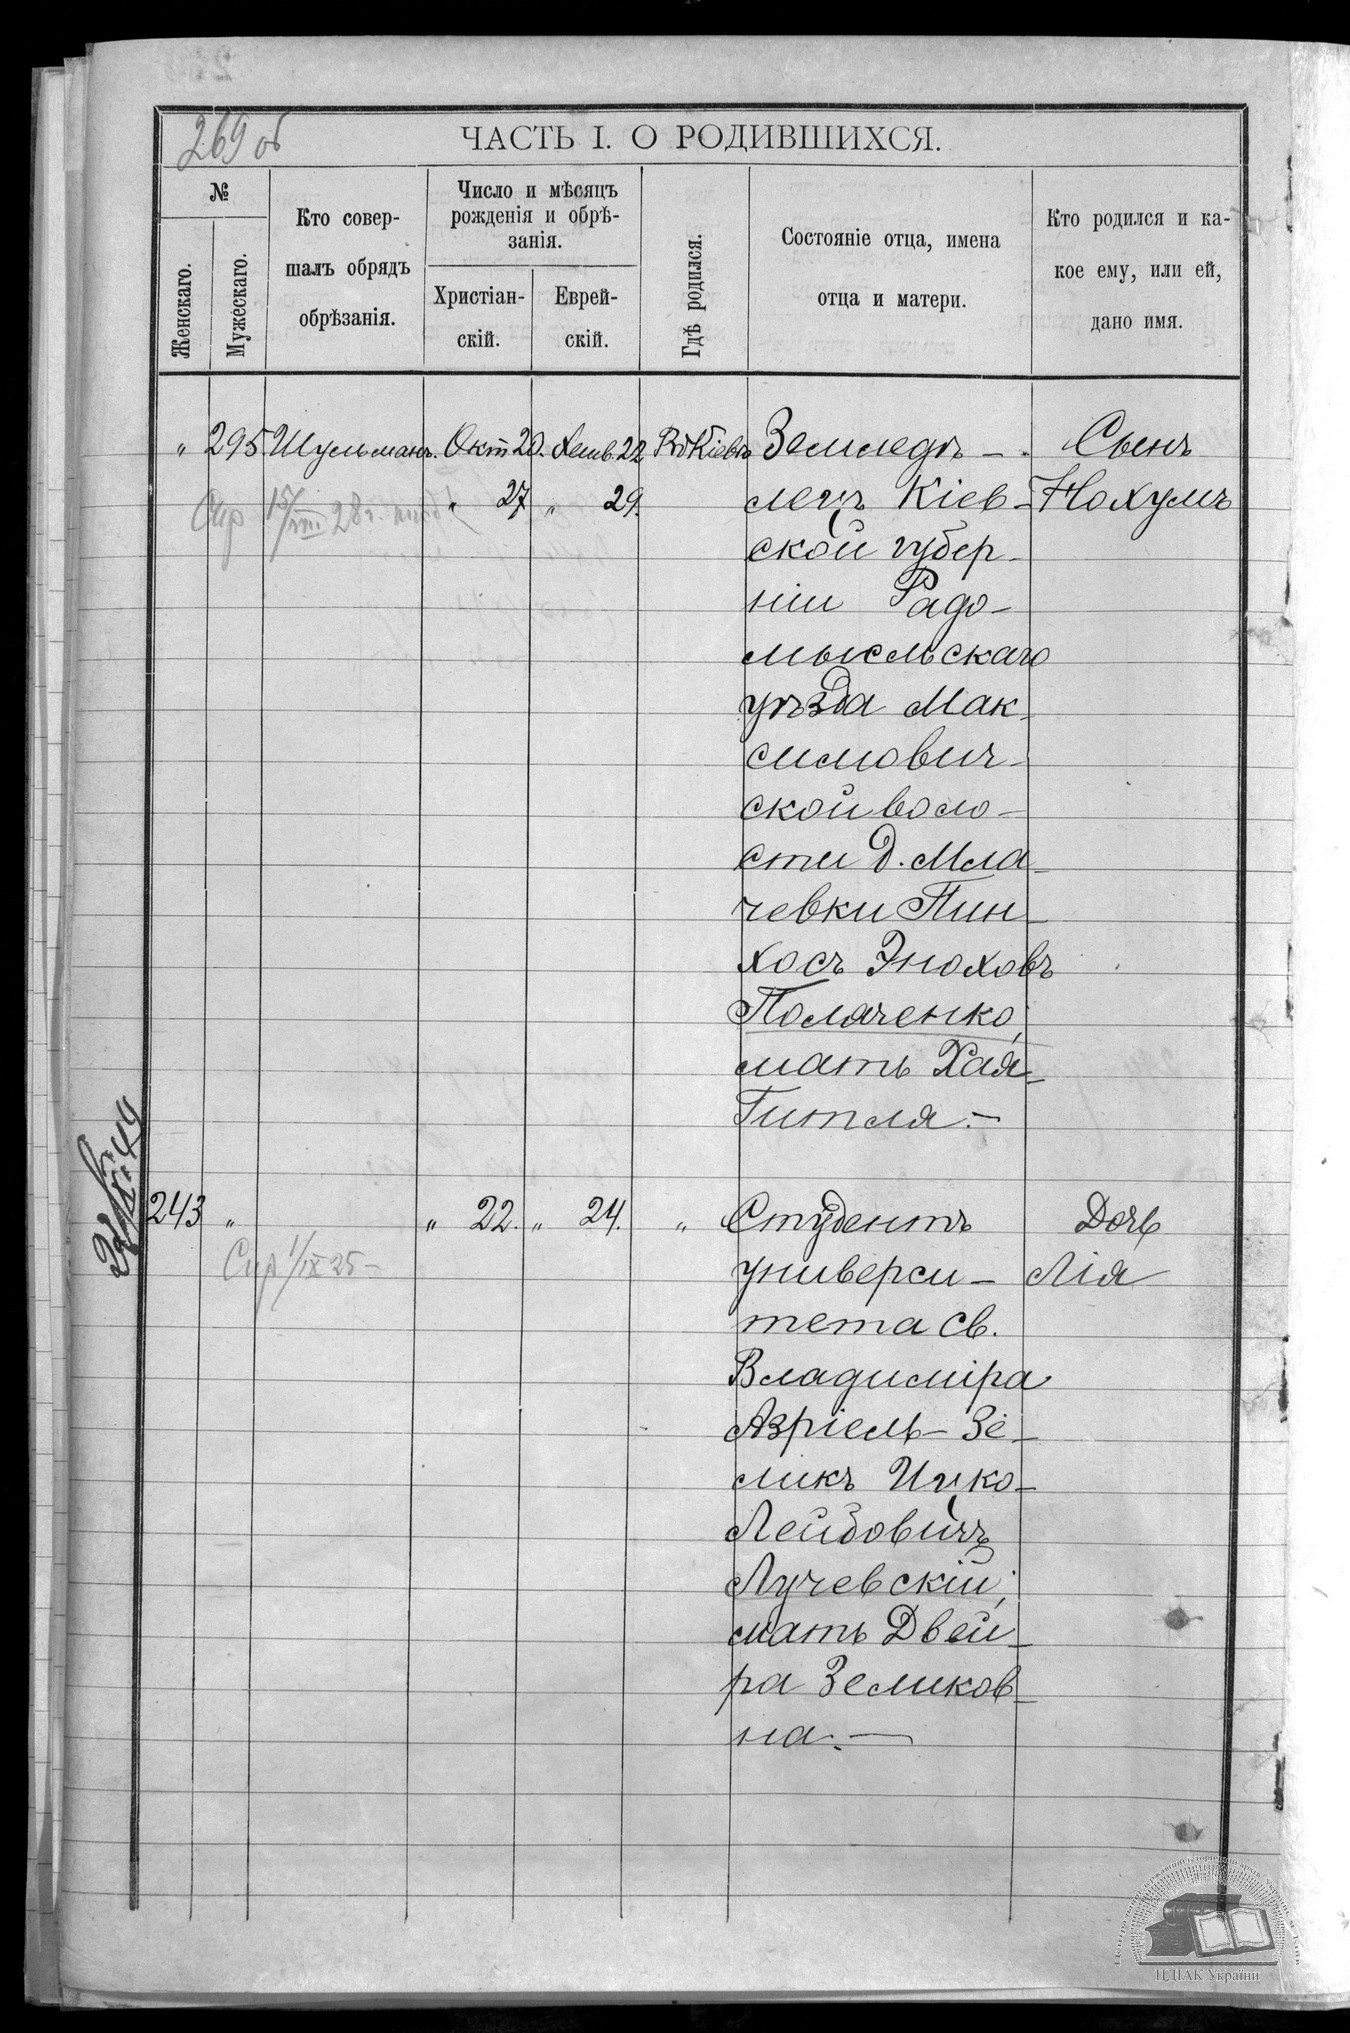 269 об
ЧАСТЬ I. О РОДИВШИХСЯ.
№
Женскаго.
Мужескаго.
Кто совер-
шалъ обрядъ
обрѣзанія.
Число и мѣсяцъ
рожденія и обрѣ-
занія.
Христіан-
скій.
Еврей-
скій.
Гдѣ родился.
Состояніе отца, имена
отца и матери.
Кто родился и ка-
кое ему, или ей,
дано имя.
" 295 Шульманъ. Окт 20. Хешв. 22 Въ Кіевѣ Земледѣ- Сынъ
" 27 " 29. лецъ Кіев- Нохумъ
ской губер-
ніи Радо-
мысльскаго
уѣзда Мак-
симович-
ской воло-
сти д. Мла-
чевки Пин-
хосъ Эноховъ
Поляченко,
мать Хая-
Гитля.-
243 " " 22. " 24. " Студентъ Дочь
универси- Лія
тета Св.
Владиміра
Азріель-Зе-
ликъ Ицко-
Лейбовичъ
Лучевскій;
мать Двей-
ра Зеликов-
на.-
Спр 1/IX 25-
ЦДІАК України